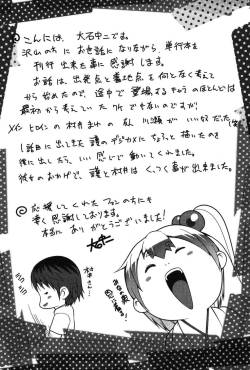 ◎こんにちは、大石中二です。
沢山の方にお世話になりながら、単行本を
刊行出来る事に感謝します。
お話は、出発点と着地点を何となく考えて
から始めたので、途中で登場するキャラのほとんどは
最初から考えていたワケでもないのですが
メインヒロインの村井
1話目に出してました
後に出したら、いい感じに動いてくれました。
彼女のおかげで、護と村井はくっつく事が出来ました。
◎応援してくれたファンの方にも
厚く感謝しております。
本当にありがとうございました!
大石中二
村井さん…